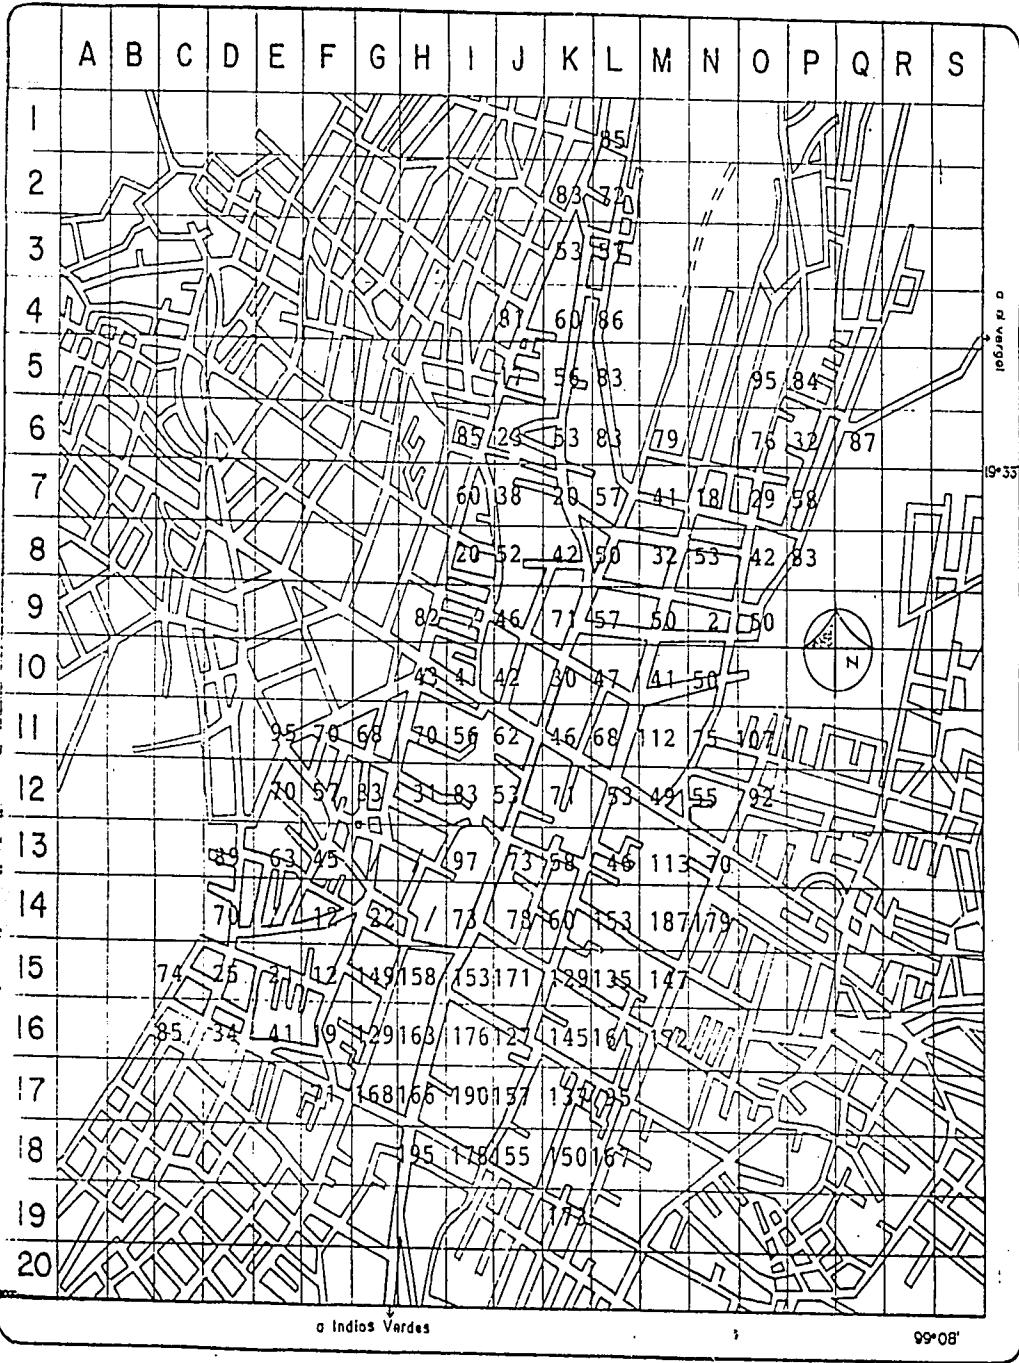 A B C D E F G H I J K L M N O P Q R S
1 85
2 83 72
3 53 57
4 81 60 86
5 56 83 95 84
6 85 53 83 79 76 32 87
7 60 38 20 57 41 18 29 58
8 20 52 42 50 32 53 42 83
9 82 46 71 57 50 2 50
10 43 42 30 47 41 50
11 95 70 68 70 56 62 46 68 112 75 107
12 70 57 83 31 83 53 71 53 49 55 92
13 89 63 45 97 73 58 46 113 70
14 70 12 22 73 78 60 153 187 179
15 74 25 21 12 149 158 153 171 129 135 147
16 85 34 41 19 129 163 176 127 145 161 172
17 71 168 166 190 157 137
18 195 178 155 150 167
19 173
20
a el vergel
19°33'
N
a Indios Verdes
99°08'